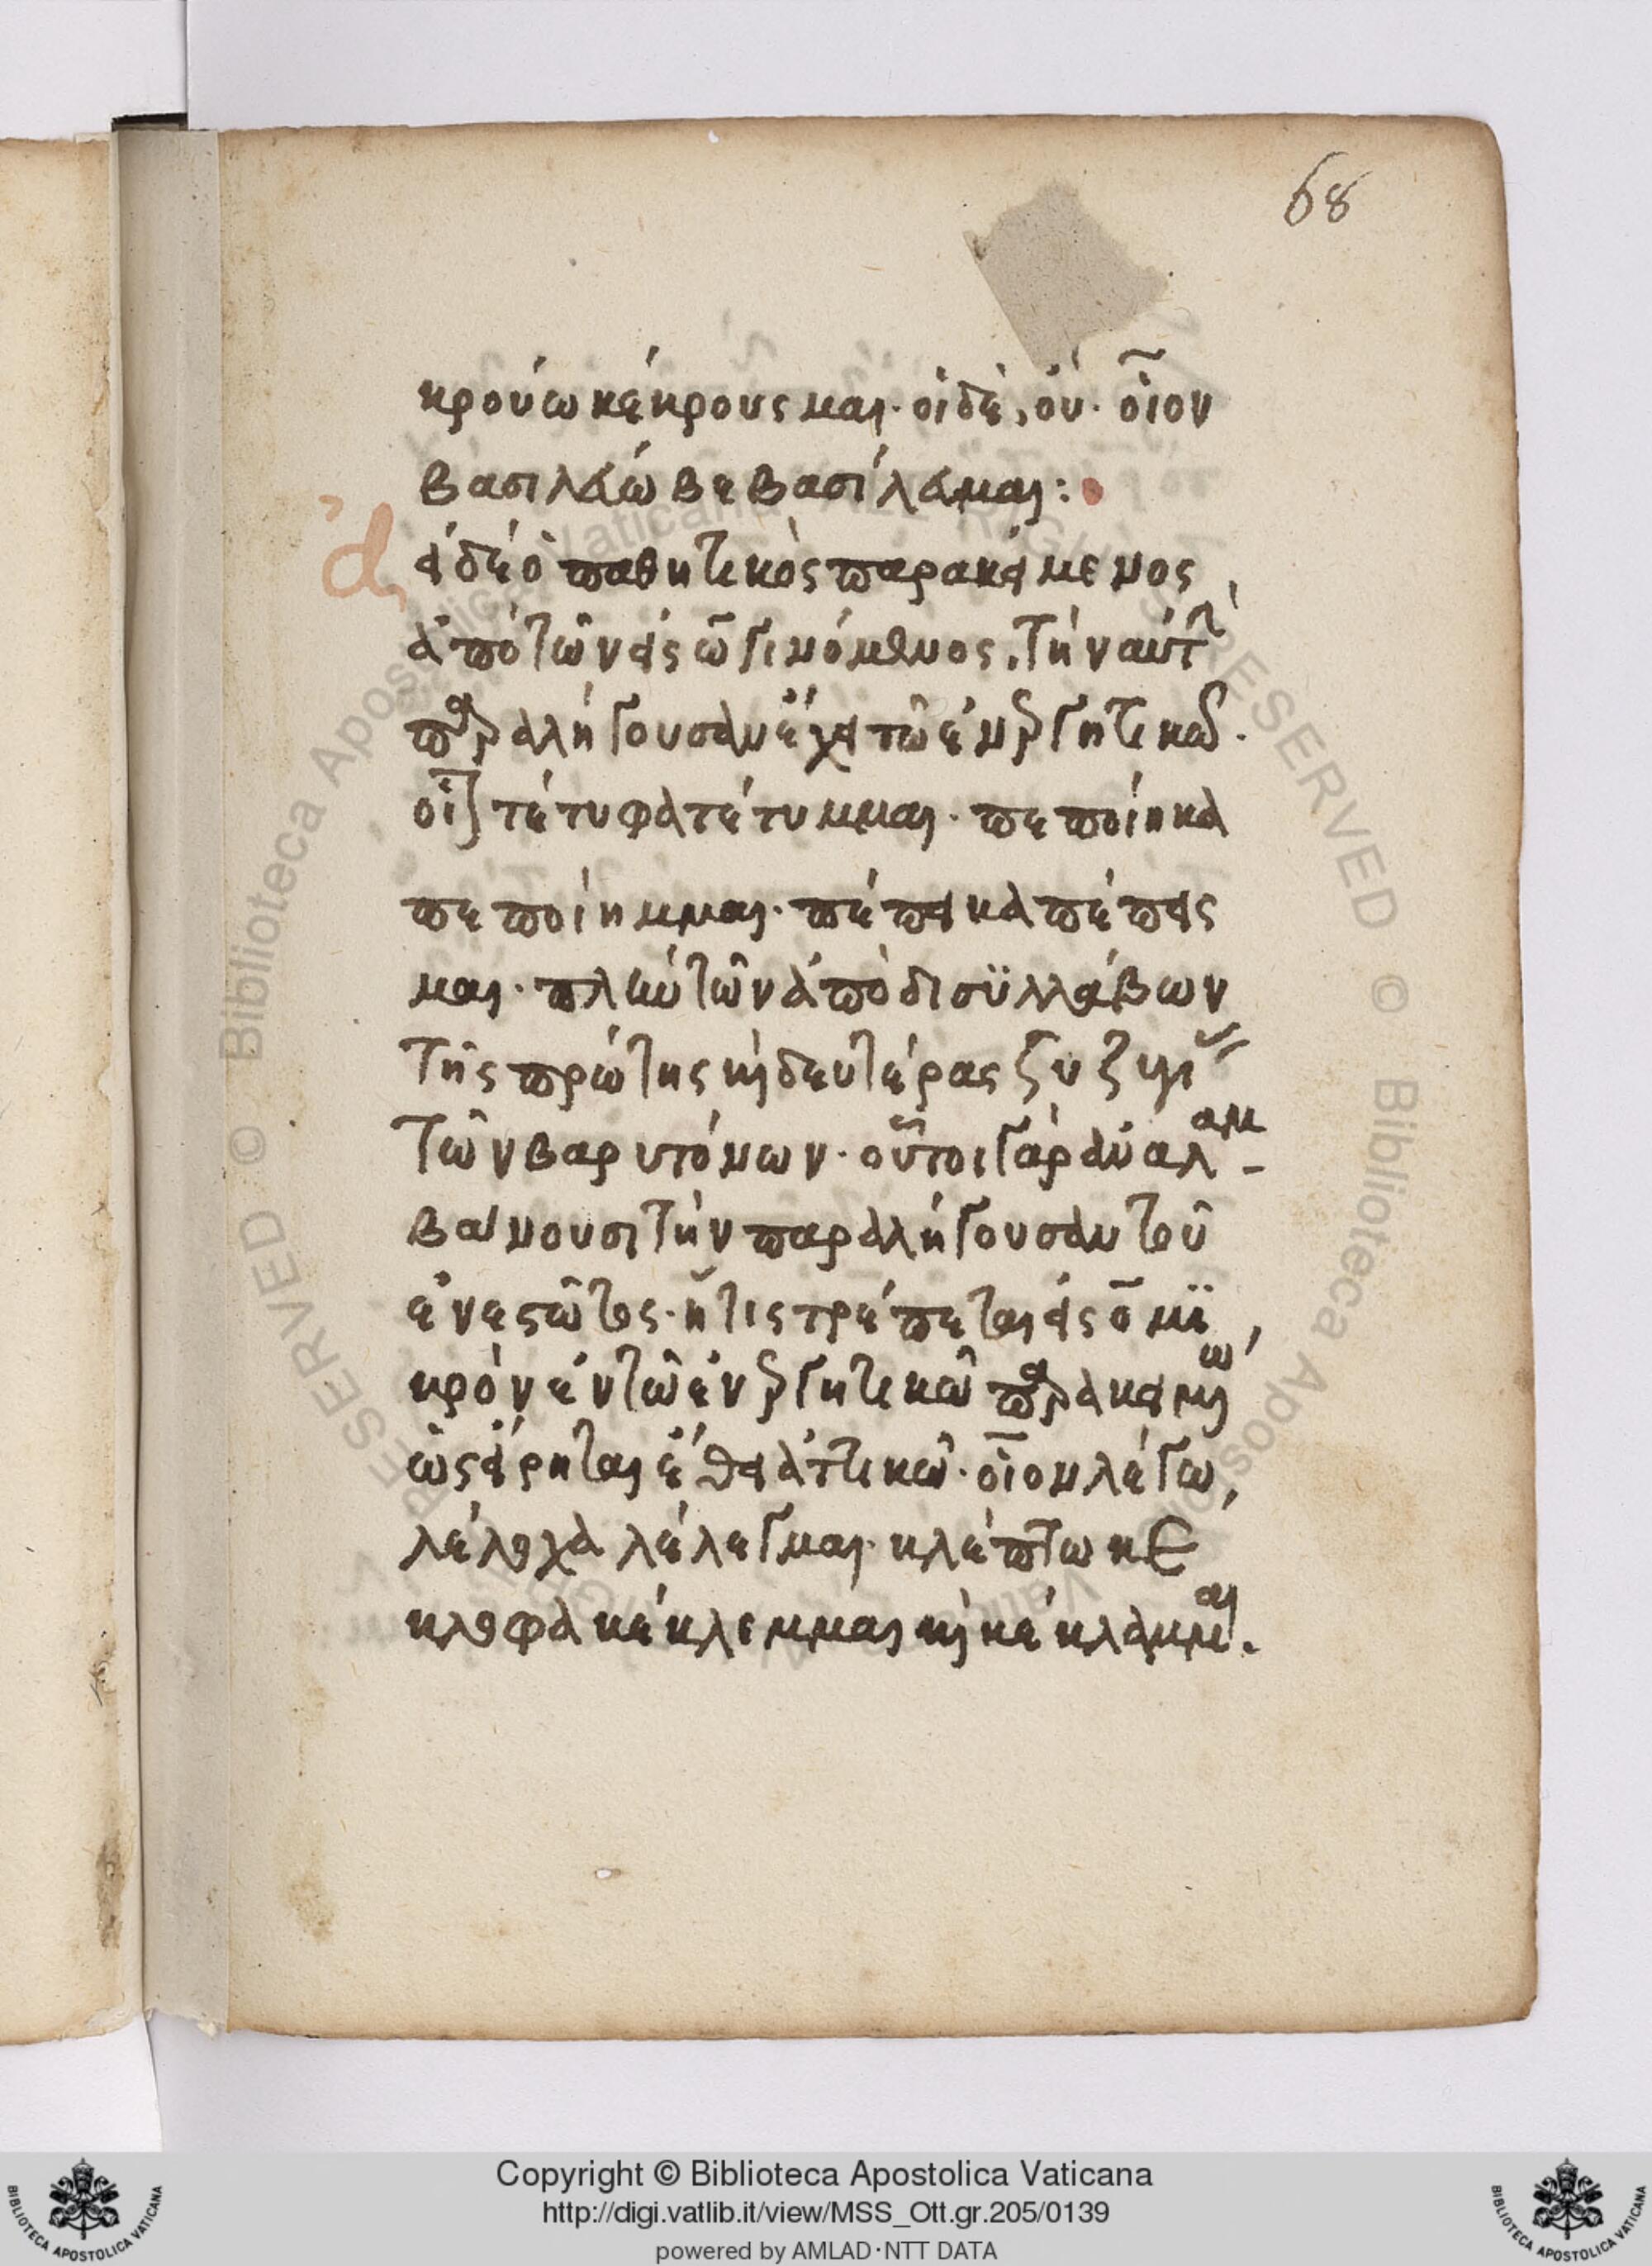 68
κρούω κέκρουσμαι· οἱ δὲ, οὐ· οἷον
βασιλεύω βεβασίλευμαι:
εἰ δὲ ὁ παθητικὸς παρακείμενος
ἀπὸ τῶν εἰς ω γινόμενος, τὴν αὐτὴν
παραλήγουσαν ἔχει τῶ ἐνεργητικῶ·
οἷον τέτυφα τέτυμμαι· πεποίηκα
πεποίημμαι· πέπεικα πέπεισ
μαι· πλὴν τῶν ἀπὸ δισϋλλάβων
τῆς πρώτης καὶ δευτέρας συζυγίας
τῶν βαρυτόνων· οὗτοι γὰρ ἀναλαμ-
βάνουσι τὴν παραλήγουσαν τοῦ
ἐνεστῶτος· ἥτις τρέπεται εἰς ο μι
κρὸν ἐν τῶ ἐνεργητικῶ παρακειμένω,
ὡς εἴρηται ἔθει ἀττικῶ· οἷον λέγω,
λέλοχα λέλεγμαι· κλέπτω κέ
κλοφα κέκλεμμαι καὶ κέκλαμμαι.
Copyright © Biblioteca Apostolica Vaticana
http://digi.vatlib.it/view/MSS_Ott.gr.205/0139
powered by AMLAD·NTT DATA
BIBLIOTECA APOSTOLICA VATICANA
BIBLIOTECA APOSTOLICA VATICANA